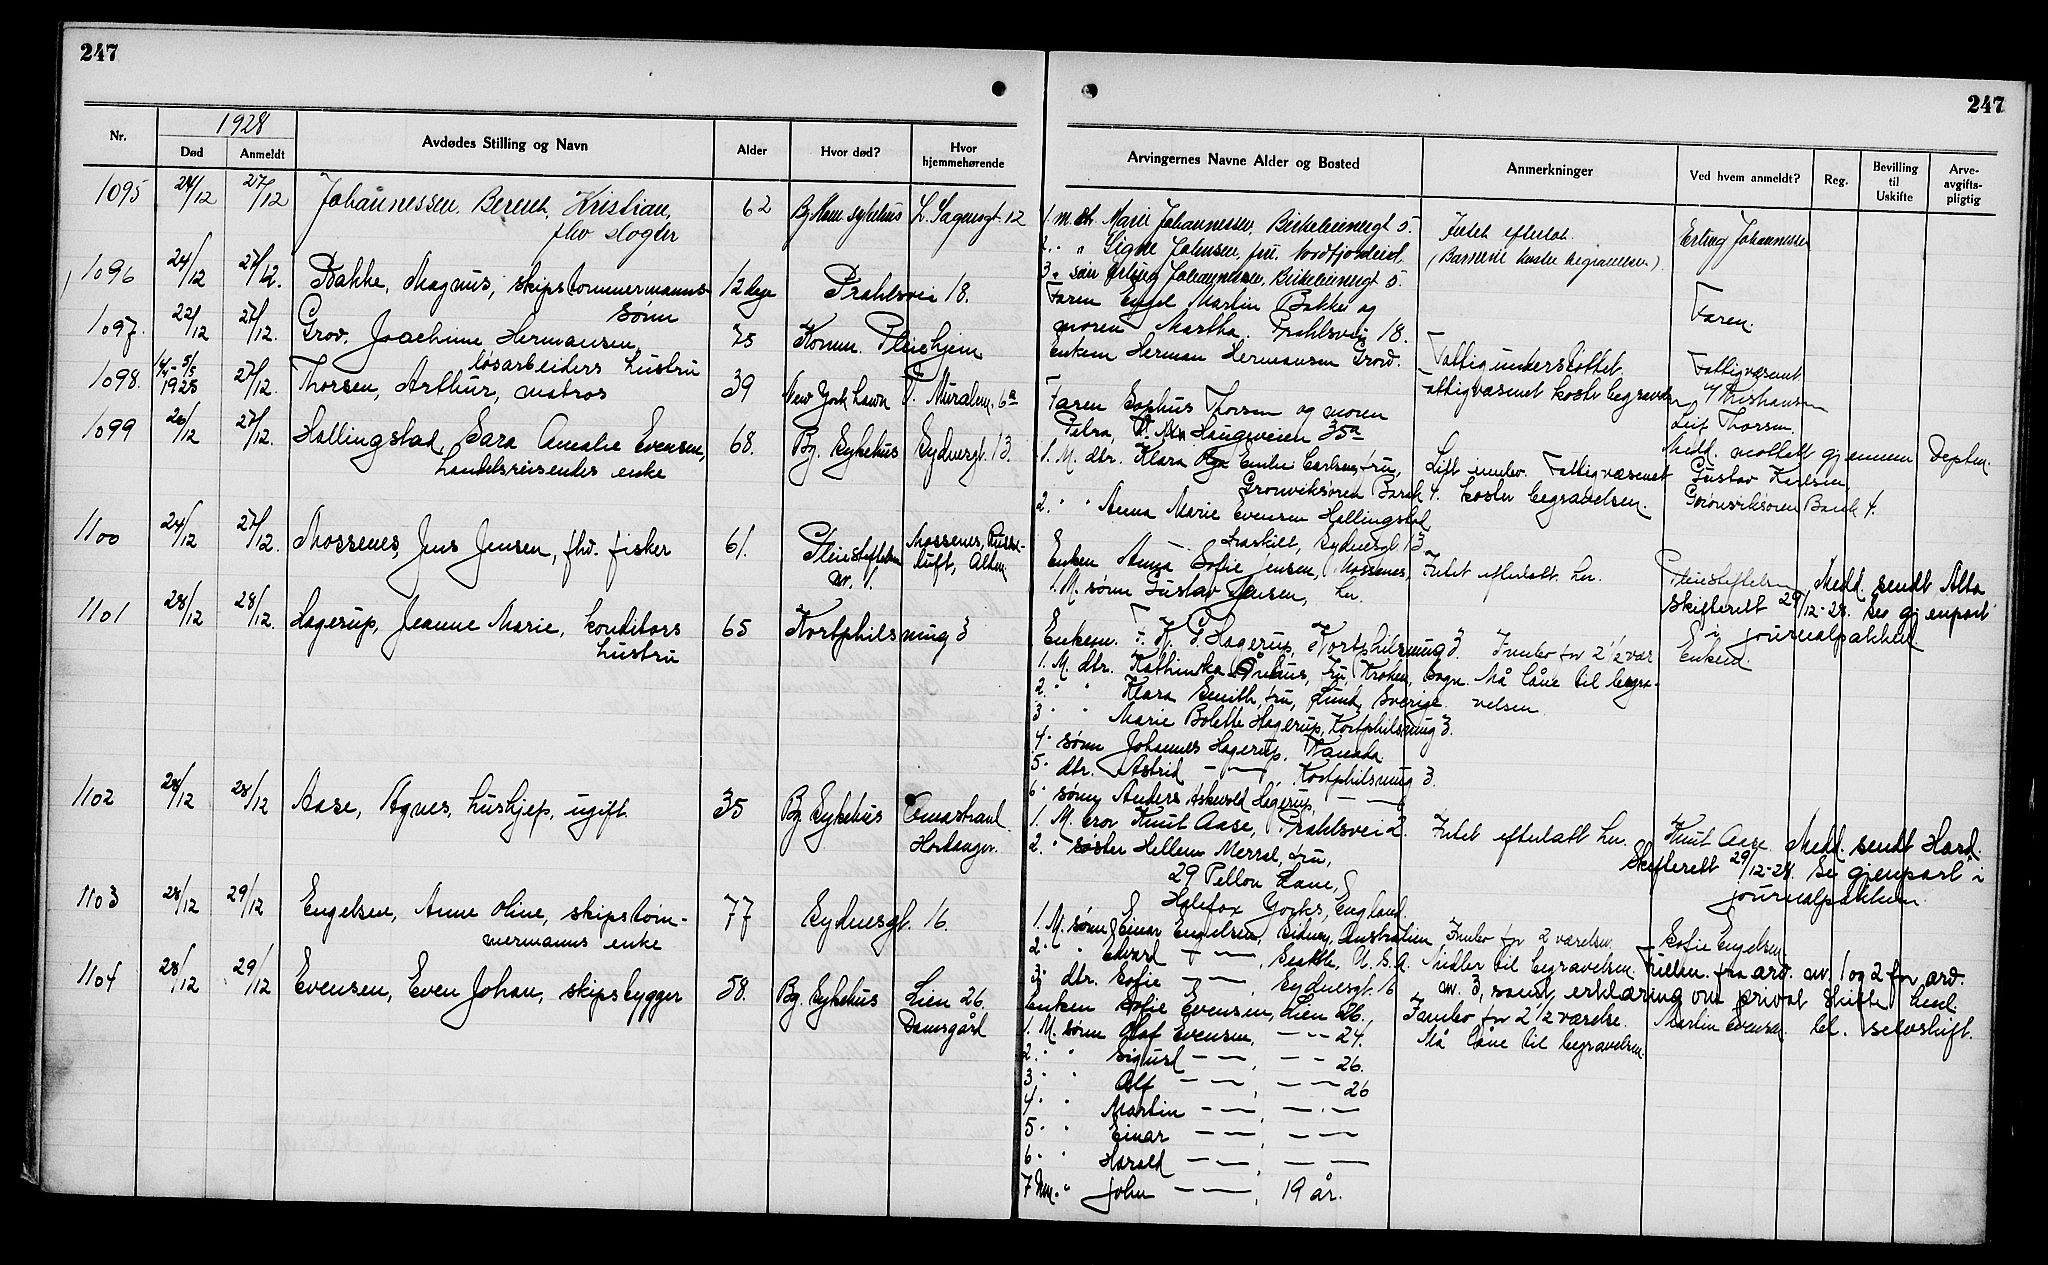 247
247
1928
Nr.
Død
Anmeldt
Avdødes Stilling og Navn
Alder
Hvor død?
Hvor hjemmehørende
Arvingernes Navne Alder og Bosted
Anmerkninger
Ved hvem anmeldt?
Reg.
Bevilling til Uskifte
Arve-avgifts-pligtig
1095 24/12 27/12 Johannessen, Berent, Kristian, 62 Bg. Kom. sykehus L. Sagensgt. 12
fhv slogter
1. M. dtr. Marie Johannessen, Birkeleinengt 5.
2. " " Signe Johnsen, fru, Nordfjordeid.
3. " søn Erling Johannessen, Birkeleinengt 5.
Intet efterlatt.
(Barnene koster begravelsen)
Erling Johannessen
1096 24/12 27/12. Bakke, Magnus, skipstømmermanns 12 dage Prahlsvei 18.
sønn
Faren Engel Martin Bakke og
moren Martha. Prahlsvei 18.
Faren.
1097. 22/12 27/12. Grov. Joachime Hermansen, 75 Komm. Pleiehjem
løsarbeiders hustru
Enkem Herman Hermansen Grov.
Fattigunderstøttet.
Fattigvæsenet koster begravelsen
Fattigvæsenet
v/ Kristiansen
1098. 14/4-5/5 1928 27/12. Thorsen, Arthur, matros 39 New York havn N. Muralm. 6a
Faren Sophus Thorsen og moren
Petra, N. Mu Haugeveien 35a
Leif Thorsen.
Medd. mottatt gjennem Depten.
1099 26/12 27/12. Hallingstad, Sara Amalie Evensen, 68. Bg. Sykehus Sydnesgt. 13.
handelsreisendes enke
1. M. dtr. Klara Emilie Carlsen, fru,
Gronviksøren Barak 4.
2. " " Anna Marie Evensen Hallingstad
fraskilt, Sydnesgt. 13
Litt innbo. Fattigvæsenet
koster begravelsen.
Gustav Karlsen,
Gronviksøren Barak 4.
1100 24/12 27/12. Mossenes, Jens Jensen, fhv. fisker 61. Pleiestiftelsen Mossenes, Russe-
nr. 1. luft, Alten
Enken Anna Sofie Jensen, Mossenes,
1. M. sønn Gustav Jensen, her.
Intet efterlatt her.
Pleiestiftelsen Medd. sendt Alta
Skifterett 29/12-28. Se gjenpart
i journalpakken
1101 28/12 28/12. Hagerup, Jeanne Marie, konditors 65 Kortphilsmug 3
hustru
Enkem. F. K. G. Hagerup, Kortphilsmug 3.
1. M. dtr. Kathinka Århus, fru, Kroken, Sogn.
2. " " Klara Smith, fru, Lund, Sverige.
3. " " Marie Bolette Hagerup, Kortphilsmug 3.
4. " sønn Johannes Hagerup, Kanada
5. " dtr. Astrid — " —, Kortphilsmug 3.
6. " sønn Anders Askevold Hagerup, — " —
Innbo for 2 1/2 vær
Må låne til begra-
velsen.
Enkem.
1102 28/12 28/12 Aase, Agnes, hushjelp, ugift. 35 Bg. Sykehus Omastrand
Hardanger.
1. M. bror Knut Aase, Prahlsvei 2.
2. " søster Hellen Merral, fru,
29 Pellon Lane,
Halefox Yorks, England.
Intet efterlatt her.
Knut Aase Medd. sendt Hard.
Skifterett 29/12-28. Se gjenpart i
journalpakken.
1103 28/12 29/12 Engelsen, Anne Oline, skipstøm- 77 Sydnesgt. 16.
mermanns enke
1. M. sønn Einar Engelsen, Sidney, Australien
2. " " Edvard — " —, Seattle, U.S.A.
3. " dtr. Sofie — " —, Sydnesgt. 16
Innbo for 2 værelser.
Midler til begravelsen. Fullm. fra arv. nr. 1 og 2 for arv.
nr. 3, samt erklæring om privat skifte henl.
Sofie Engelsen
1104 28/12 29/12 Evensen, Even Johan, skipsbygger 58. Bg. Sykehus Lien 26.
Damsgård
Enken Sofie Evensen, Lien 26.
1. M. sønn Olaf Evensen, — " — 24.
2. " " Sigurd — " —, — " — 26.
3. " " Alf — " —, — " — 26
4. " " Martin — " —, — " —
5. " " Einar — " —, — " —
6. " " Harald — " —, — " —
7 Um. " John — " —, 19 år.
Innbo for 2 1/2 værelse.
Må låne til begravelsen.
Martin Evensen bl. selvskift.